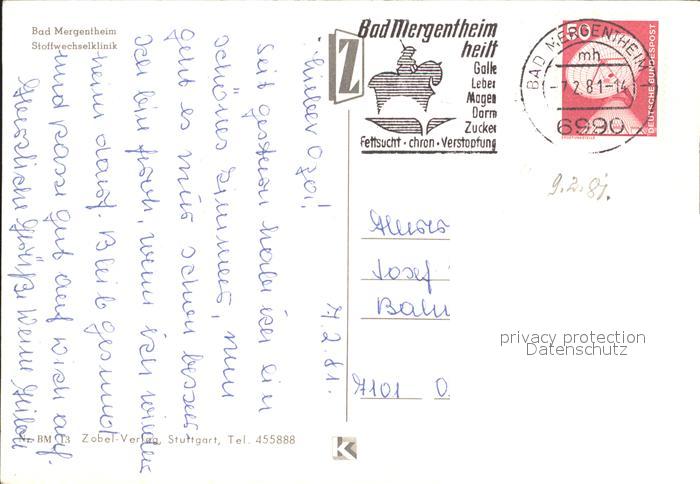 Bad Mergentheim
Stoffwechselklinik
7.2.81.
Lieber Opa!
Seit gestern habe ich ein
schönes Zimmer, nun
geht es mir schon besser
Ich bin froh, wenn ich wieder
heim darf. Bleib gesund
und passe gut auf dich auf.
Herzliche Grüße Deine
Bad Mergentheim
heilt
Galle
Leber
Magen
Darm
Zucker
Fettsucht · chron · Verstopfung
Z
BAD MERGENTHEIM
mh
-7.2.81-14
6990
60
DEUTSCHE BUNDESPOST
9.2.81.
Herrn
Josef
7101 O
privacy protection
Datenschutz
Nr. BM 13 Zobel-Verlag, Stuttgart, Tel. 455888
K